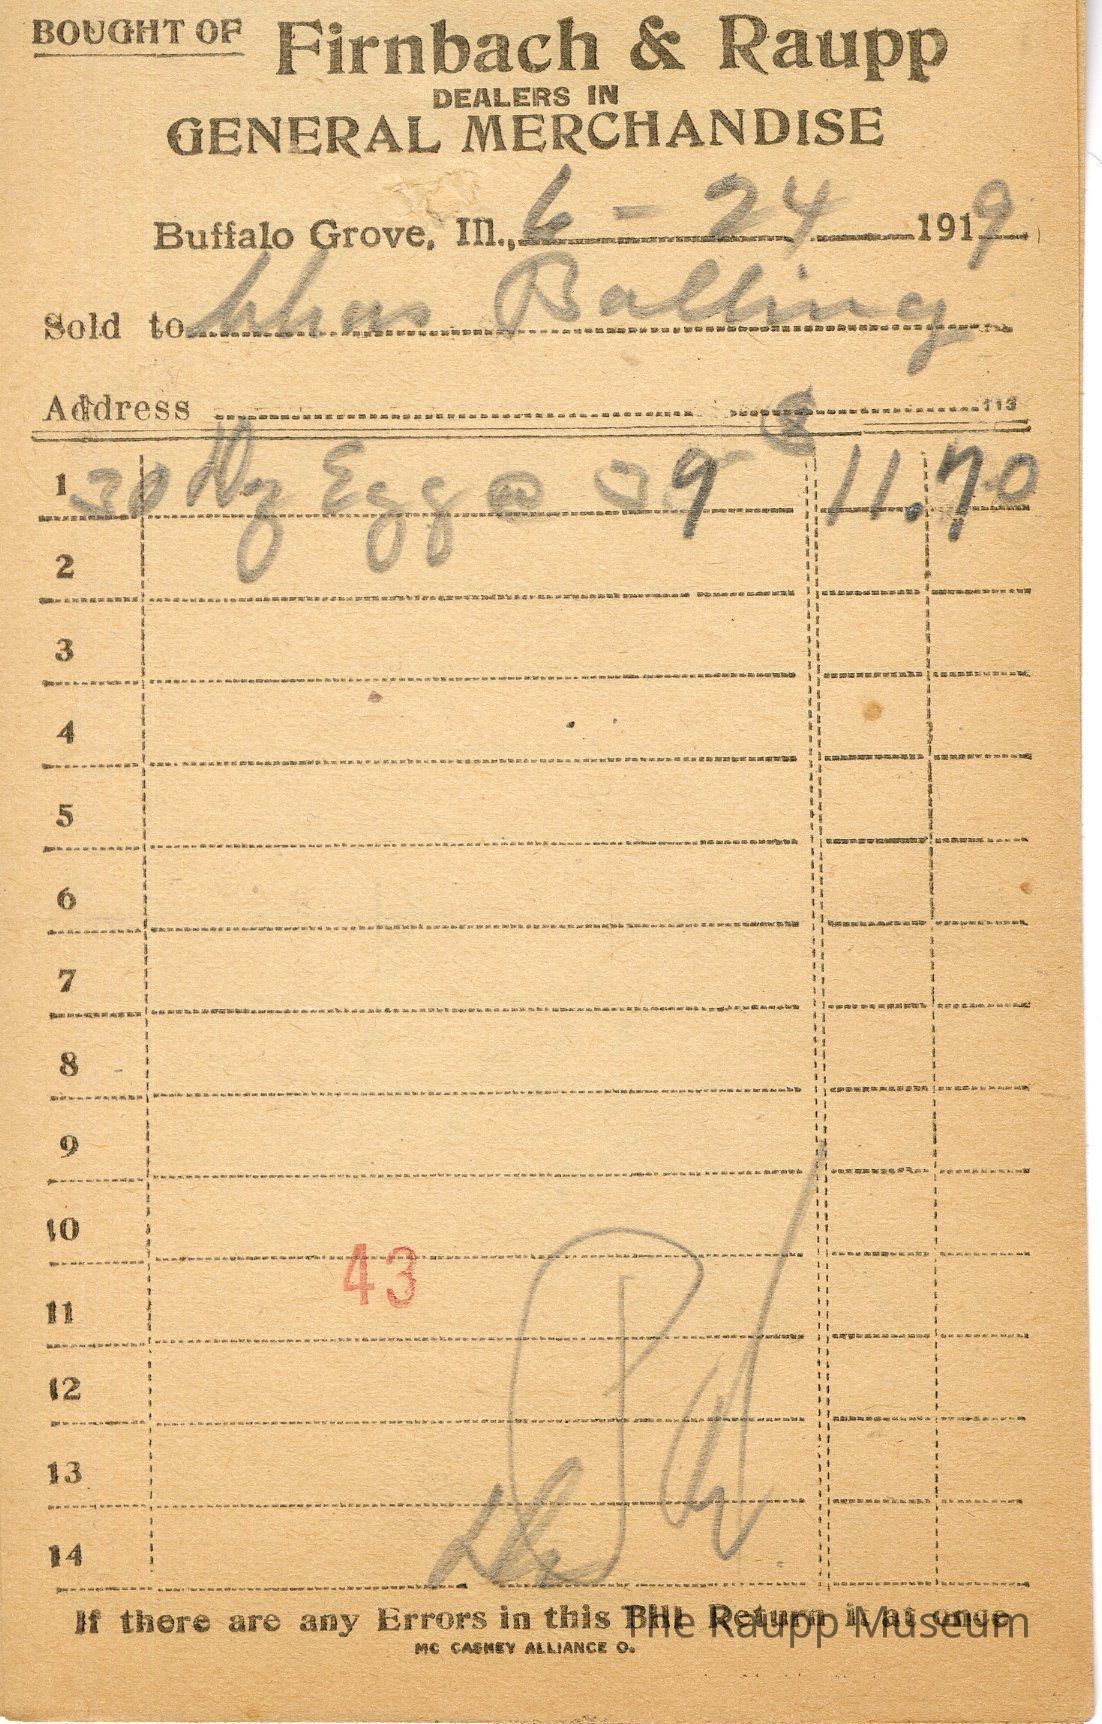 BOUGHT OF Firnbach & Raupp
DEALERS IN
GENERAL MERCHANDISE
Buffalo Grove, Ill., 6 - 24 1919
Sold to Chas Balling
Address 113
1 30 Dz Egg @ 39 11.70
2
3
4
5
6
7
8
9
10
43
11
12
13
14
If there are any Errors in this Bill Return it at once
The Raupp Museum
MC CASKEY ALLIANCE O.